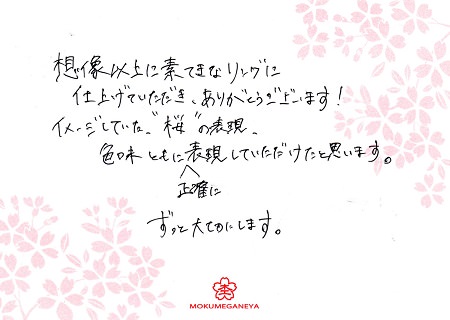 想像以上に素てきなリングに
仕上げていただき、ありがとうございます！
イメージしていた、“桜”の表現、
色味ともに表現していただけたと思います。
正確に
ずっと大切にします。
MOKUMEGANEYA